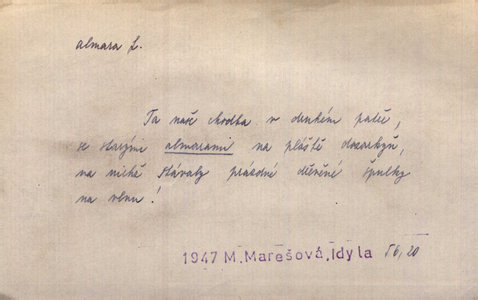 almara f.
Ta naše chodba v druhém patře,
se starými almarami na pláště dozorkyň,
na nichž stávaly prázdné dřevěné špulky
na vlnu!
1947 M. Marešová, Idyla 56, 20